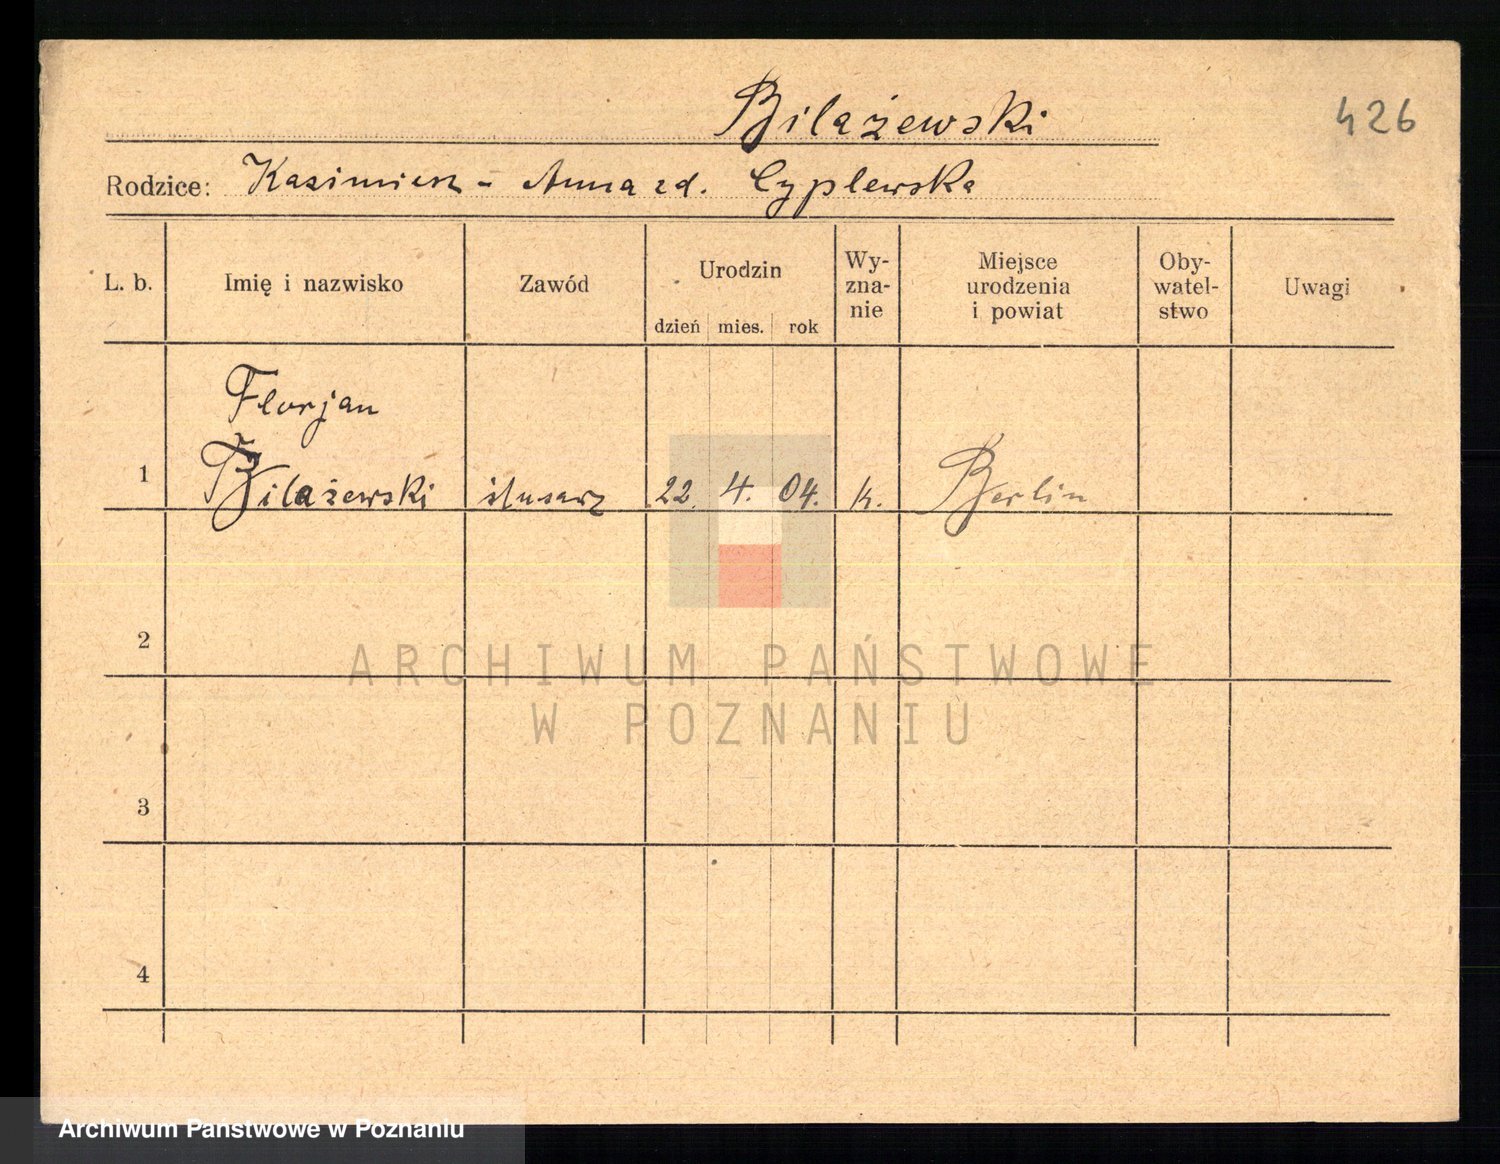 Bilażewski
426
Rodzice: Kazimierz - Anna zd. Cyplewska
L. b.
Imię i nazwisko
Zawód
Urodzin
dzień mies. rok
Wy-
zna-
nie
Miejsce
urodzenia
i powiat
Oby-
watel-
stwo
Uwagi
Florjan
1 Bilażewski ślusarz 22. 4. 04. k. Berlin
2
ARCHIWUM PAŃSTWOWE
W POZNANIU
3
4
Archiwum Państwowe w Poznaniu